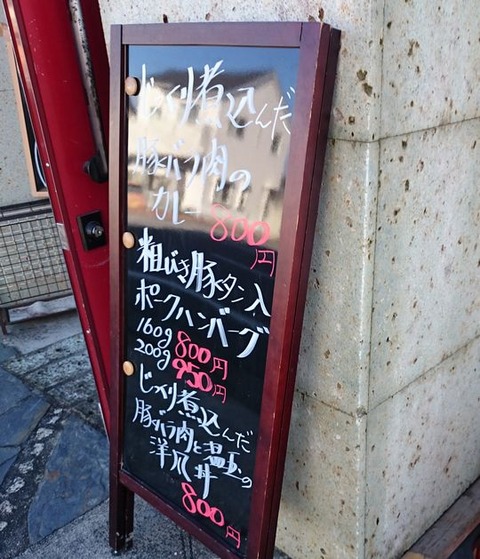 じっくり煮込んだ
豚バラ肉の
カレー 800
円
粗びき豚タン入
ポークハンバーグ
160g 800円
200g 950円
じっくり煮込んだ
豚バラ肉と温玉の
洋風丼
800円